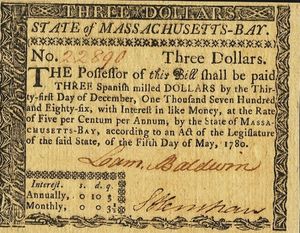 THREE DOLLARS.
STATE of MASSACHUSETTS-BAY.
No. 22890 Three Dollars.
THE Possessor of this Bill shall be paid
THREE Spanish milled DOLLARS by the Thir-
ty-first Day of December, One Thousand Seven Hundred
and Eighty-six, with Interest in like Money, at the Rate
of Five per Centum per Annum, by the State of MASSA-
CHUSETTS-BAY, according to an Act of the Legislature
of the said State, of the Fifth Day of May, 1780.
Loam. Baldwin
Interest. s. d. q.
Annually, 0 10 3
Monthly, 0 0 3½